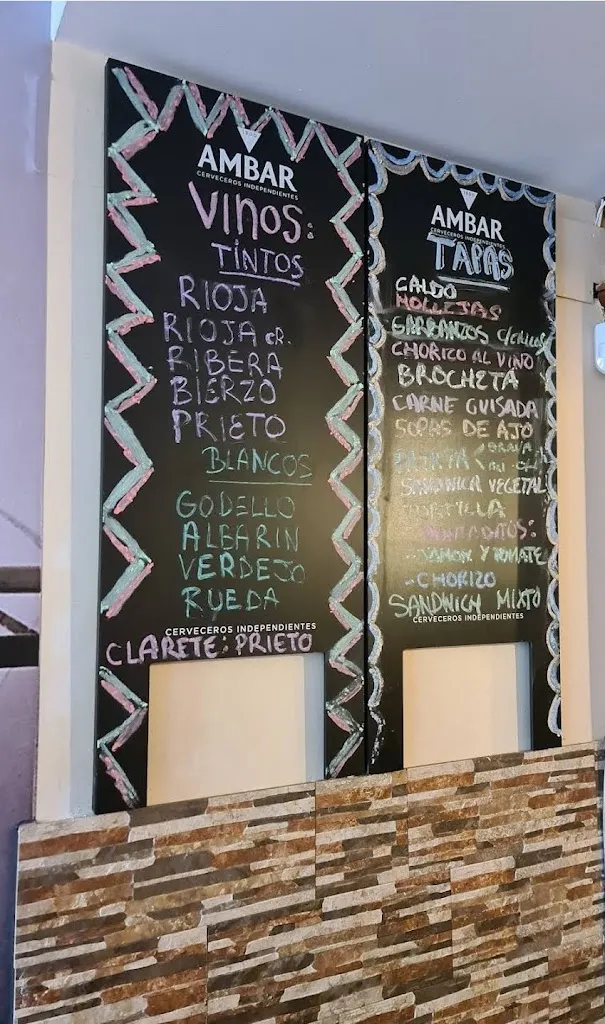 AMBAR
CERVECEROS INDEPENDIENTES
VINOS:
TINTOS
RIOJA
RIOJA CR.
RIBERA
BIERZO
PRIETO
BLANCOS
GODELLO
ALBARIN
VERDEJO
RUEDA
CERVECEROS INDEPENDIENTES
CLARETE: PRIETO
AMBAR
CERVECEROS INDEPENDIENTES
TAPAS
CALDO
MOLLEJAS
GARBANZOS C/CALLOS
CHORIZO AL VINO
BROCHETA
CARNE GUISADA
SOPAS DE AJO
SANDWICH VEGETAL
- JAMON Y TOMATE
- CHORIZO
SANDWICH MIXTO
CERVECEROS INDEPENDIENTES